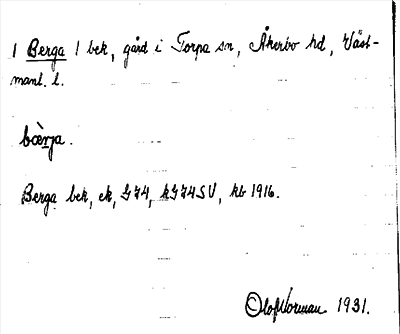 1 Berga 1 bek, gård i Torpa sn, Åkerbo hd, Väst-
manl. l.
bæ̀rja.
Berga bek, ek, GJ4, kGJ4SU, kb 1916.
Olof Worman 1931.